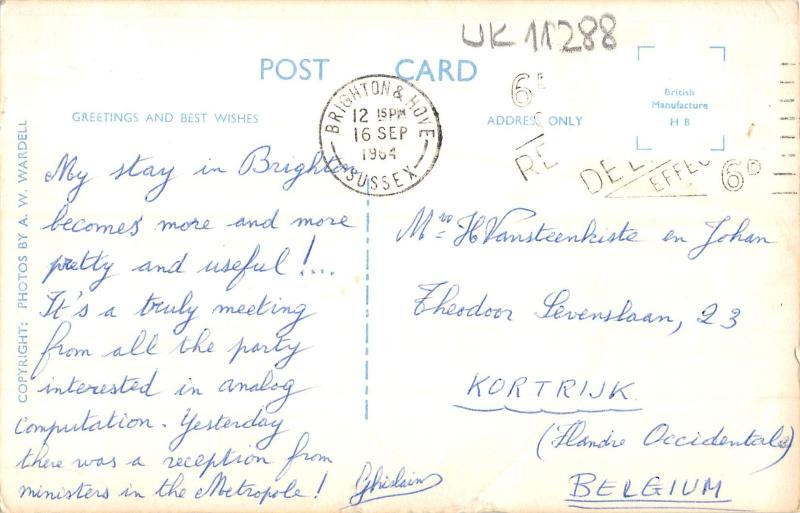 UK 11288
POST CARD
GREETINGS AND BEST WISHES
ADDRESS ONLY
British
Manufacture
H B
BRIGHTON & HOVE
12 15PM
16 SEP
1964
SUSSEX
6D
RE
DE
EFFEC
6D
COPYRIGHT: PHOTOS BY A. W. WARDELL
My stay in Brighton
becomes more and more
pretty and useful!...
It's a truly meeting
from all the party
interested in analog
computation. Yesterday
there was a reception from
ministers in the Metropole!
Ghislain
Mro H Vansteenkiste en Johan
Theodoor Sevenslaan, 23
KORTRIJK
(Flandre Occidentale)
BELGIUM